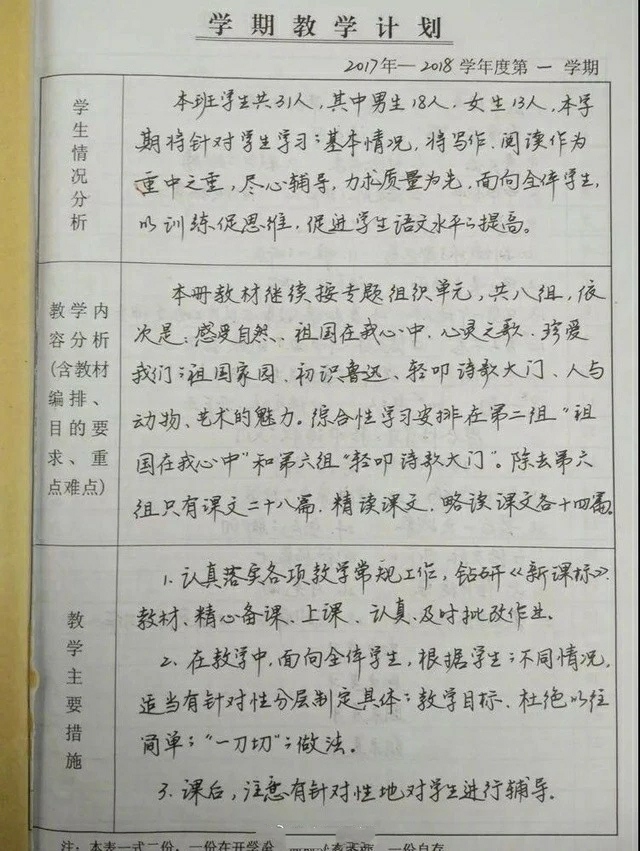 学期教学计划
2017年—2018学年度第一学期
学生情况分析
本班学生共31人，其中男生18人，女生13人，本学
期将针对学生学习的基本情况，将写作、阅读作为
重中之重，尽心辅导，力求质量为先，面向全体学生，
以训练促思维，促进学生语文水平的提高。
教学内
容分析
(含教材
编排、
目的要
求、重
点难点)
本册教材继续按专题组织单元，共八组，依
次是：感受自然、祖国在我心中、心灵之歌、珍爱
我们的祖国家园、初识鲁迅、轻叩诗歌大门、人与
动物、艺术的魅力。综合性学习安排在第二组“祖
国在我心中”和第六组“轻叩诗歌大门”。除去第六
组只有课文二十八篇，精读课文、略读课文各十四篇。
教学主要措施
1.认真落实各项教学常规工作，钻研《新课标》、
教材、精心备课、上课、认真、及时批改作业。
2.在教学中，面向全体学生，根据学生的不同情况，
适当有针对性分层制定具体的教学目标、杜绝以往
简单的“一刀切”的做法。
3.课后，注意有针对性地对学生进行辅导。
注：本表一式二份，一份在开学前
一份自存